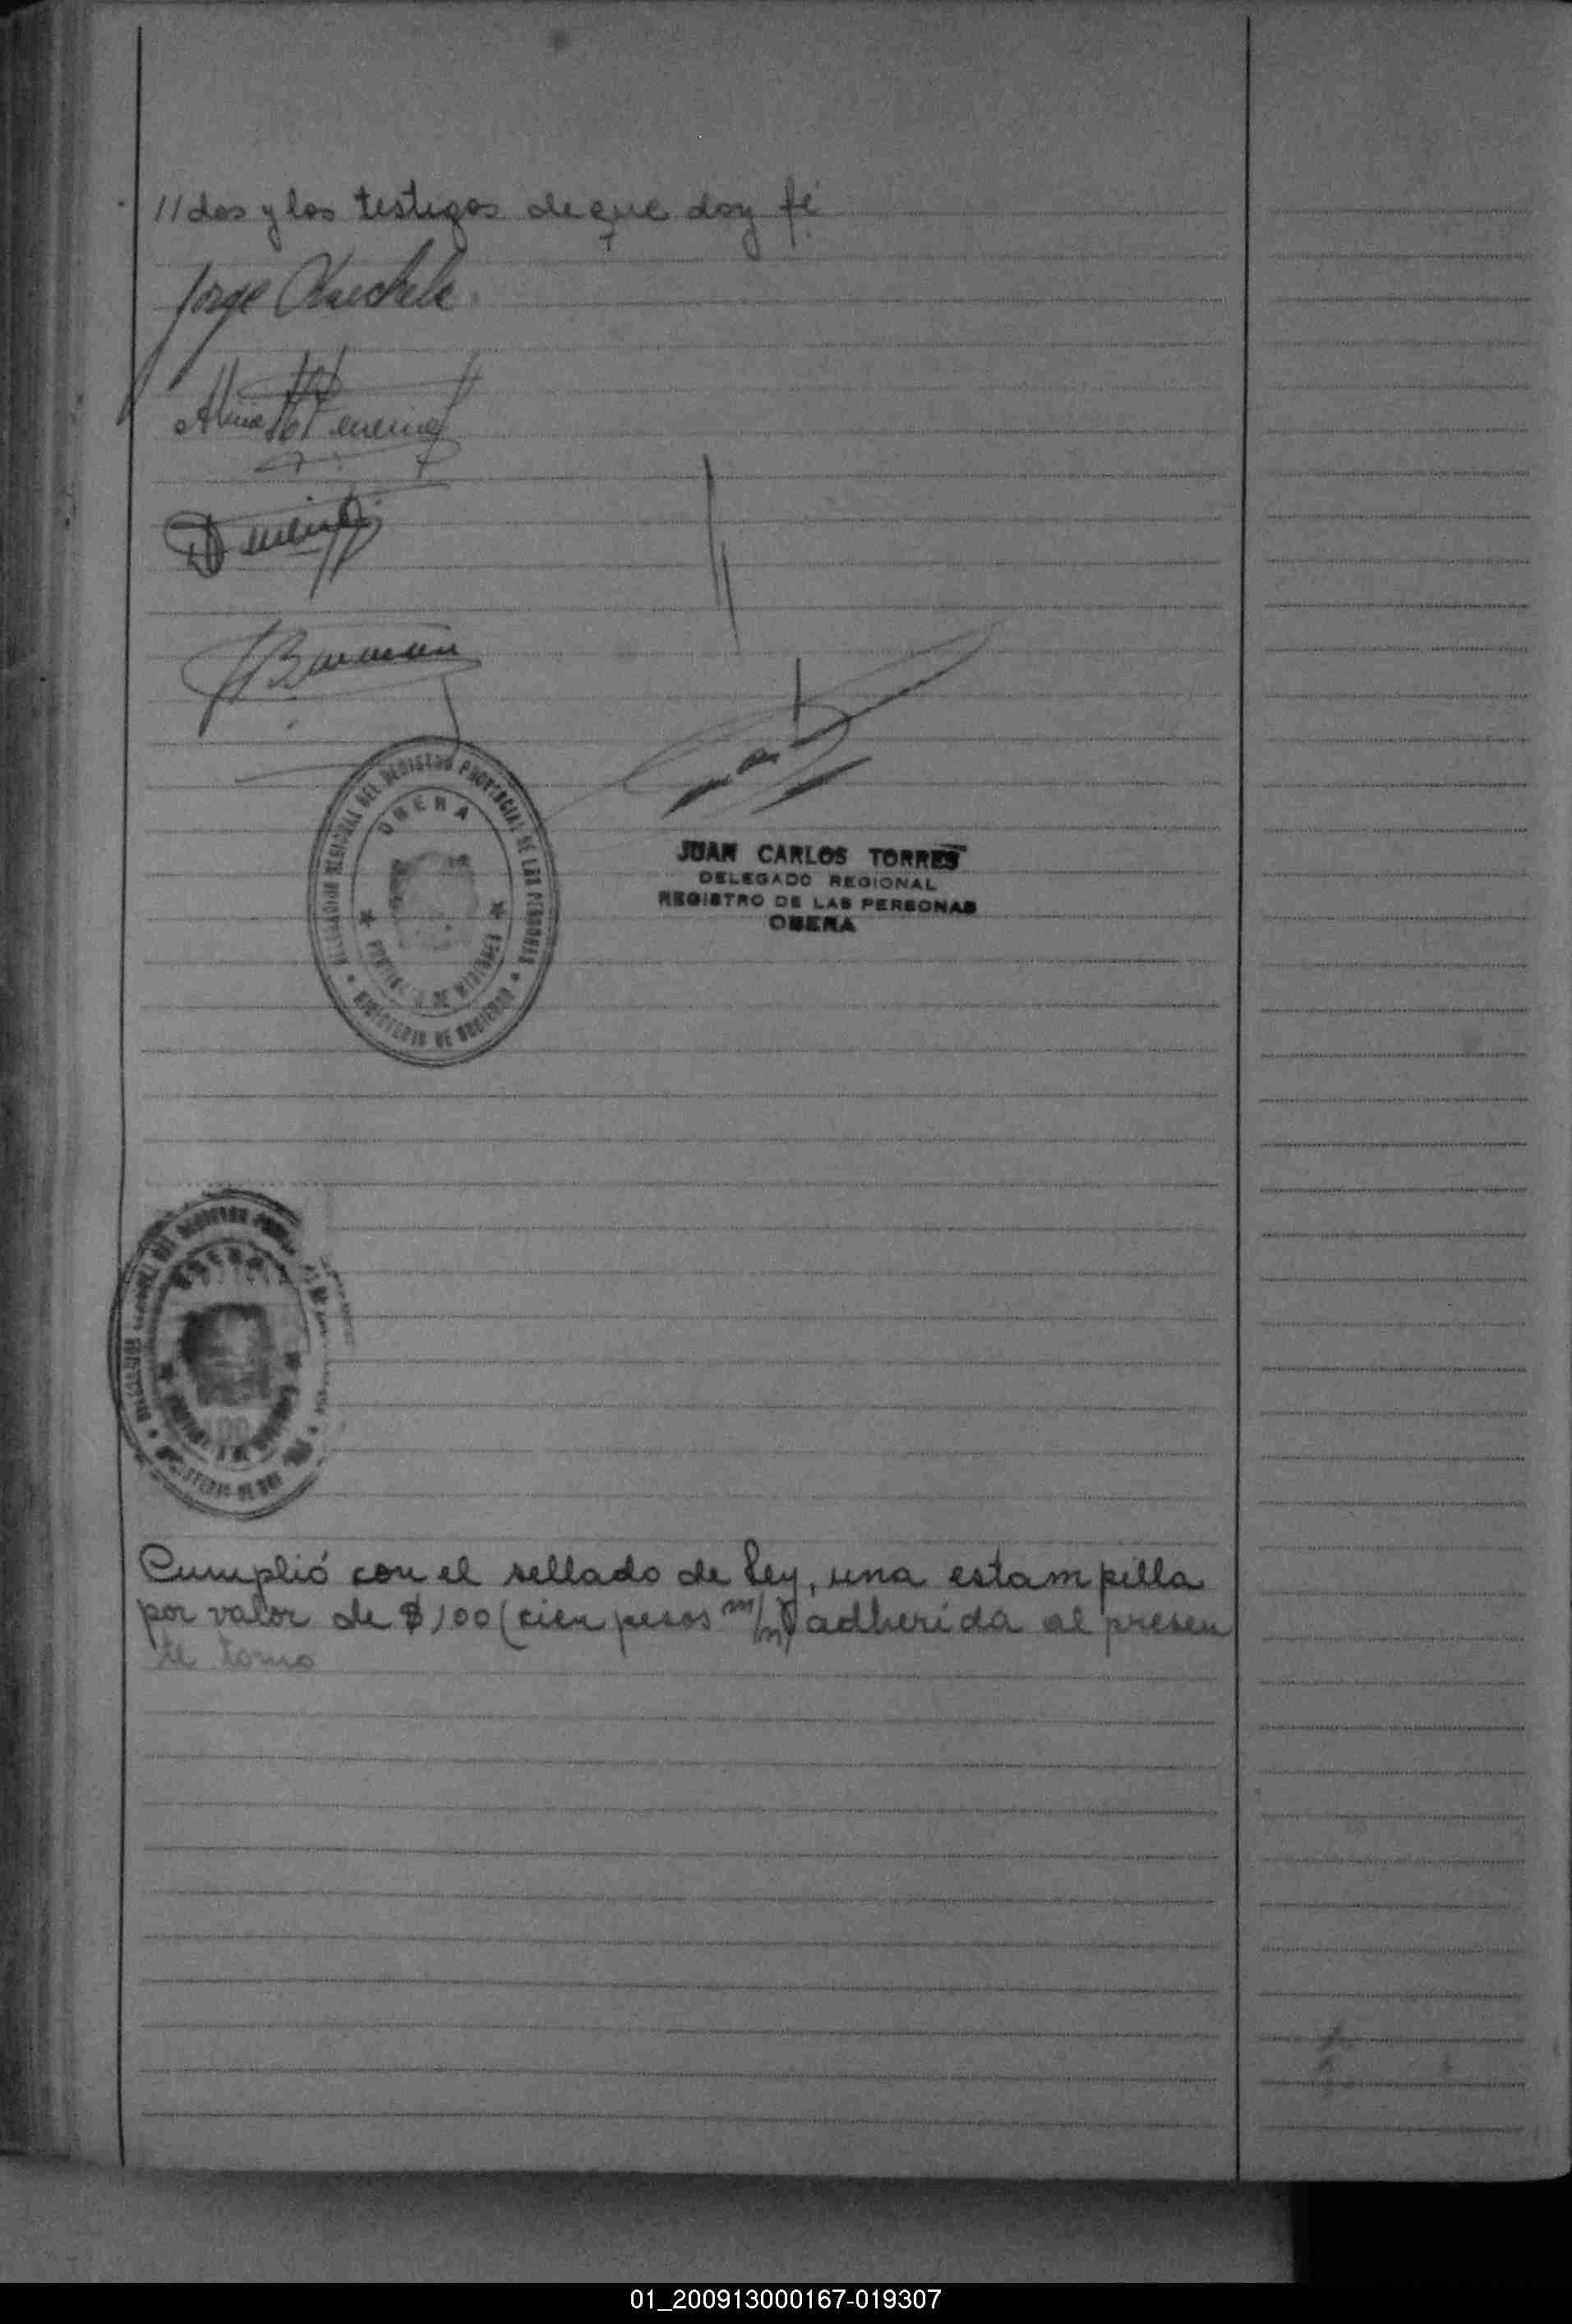 //dos y los testigos de que doy fé
Jorge
DELEGACION REGIONAL DEL REGISTRO PROVINCIAL DE LAS PERSONAS
OBERA
PROVINCIA DE MISIONES
MINISTERIO DE GOBIERNO
JUAN CARLOS TORRES
DELEGADO REGIONAL
REGISTRO DE LAS PERSONAS
OBERA
OBERA
Cumplió con el sellado de Ley, una estampilla
por valor de $100 (cien pesos m/n) adherida al presen
te tomo
01_200913000167-019307